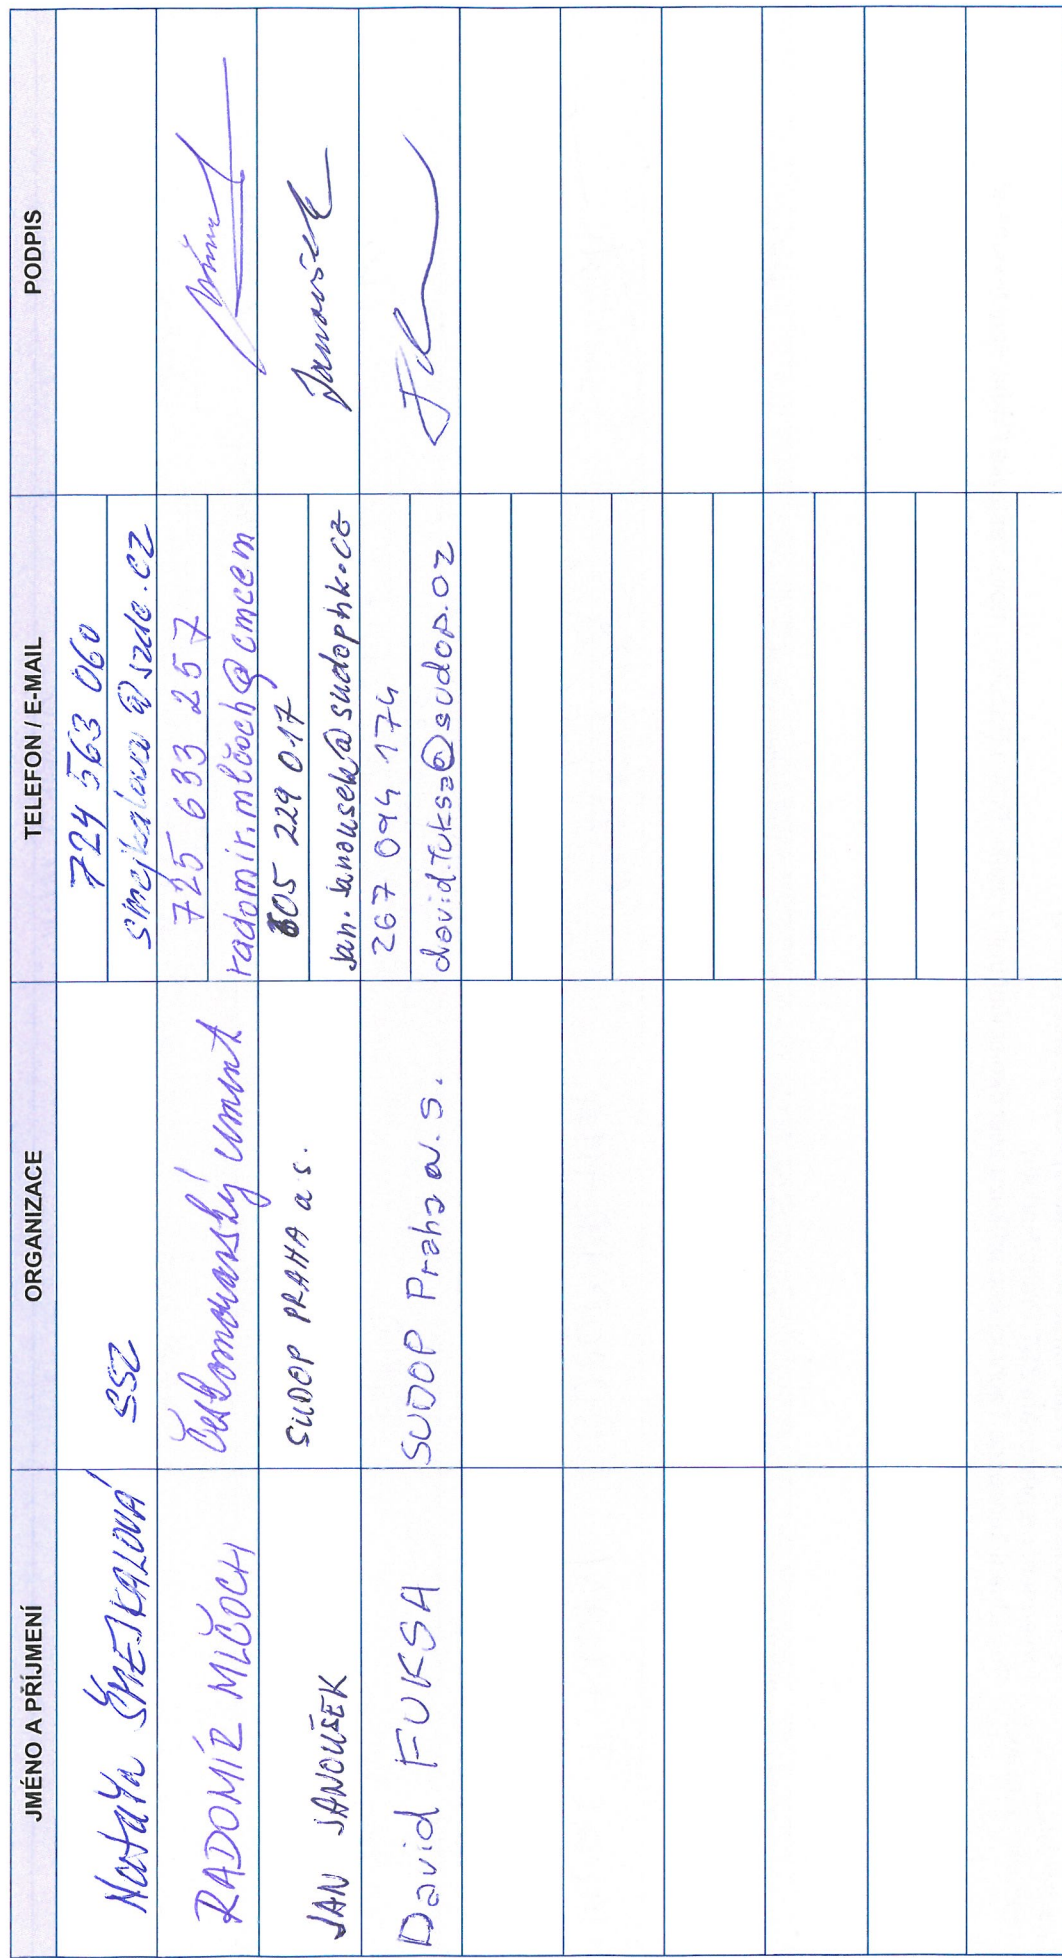 JMÉNO A PŘÍJMENÍ ORGANIZACE TELEFON / E-MAIL PODPIS
ŠMEJKALOVÁ SSZ 724 563 060
RADOMÍR MLČOCH Českomoravský cement 725 633 257
radomir.mlcoch@cmcem
JAN JANOUŠEK SUDOP PRAHA a.s. 605 229 017 Janoušek
jan.janousek@sudophk.cz
David FUKSA SUDOP Praha a.s. 267 094 174
david.fuksa@sudop.cz